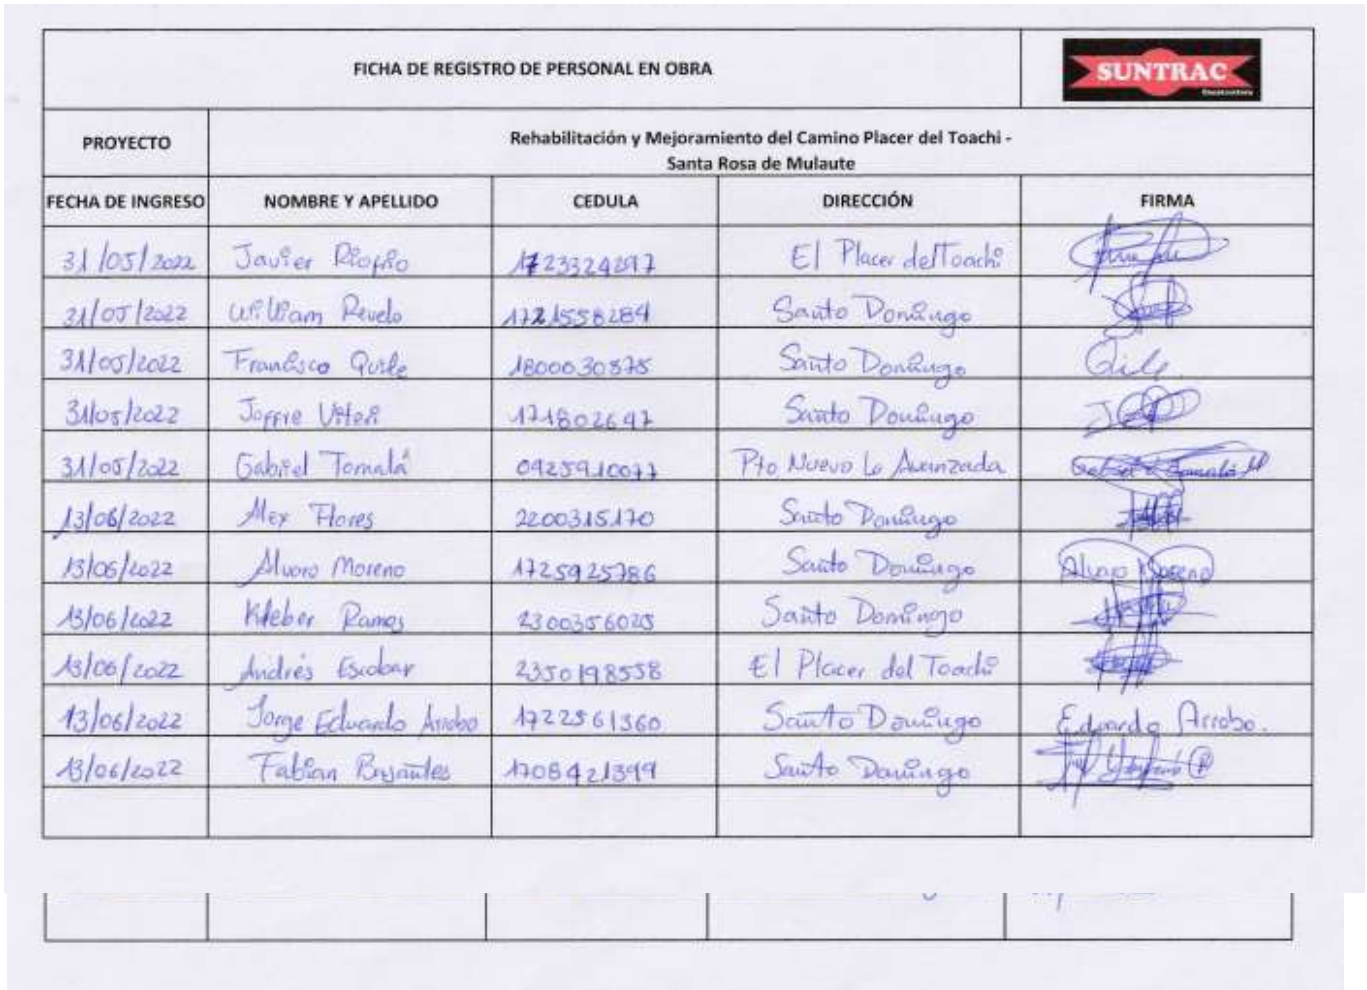 FICHA DE REGISTRO DE PERSONAL EN OBRA
SUNTRAC
PROYECTO
Rehabilitación y Mejoramiento del Camino Placer del Toachi -
Santa Rosa de Mulaute
FECHA DE INGRESO NOMBRE Y APELLIDO CEDULA DIRECCIÓN FIRMA
31/05/2022 Javier Riofrio 1723324297 El Placer del Toachi
31/05/2022 William Revelo 1721558284 Santo Domingo
31/05/2022 Francisco Quile 1800030875 Santo Domingo Qile
31/05/2022 Joffre Viteri 171802647 Santo Domingo
31/05/2022 Gabriel Tomalá 0925910077 Pto Nuevo La Avanzada Gabriel Tomalá M
13/06/2022 Alex Flores 2200315170 Santo Domingo
13/06/2022 Alvaro Moreno 1725925786 Santo Domingo Alvaro Moreno
13/06/2022 Kleber Ramos 2300356025 Santo Domingo
13/06/2022 Andrés Escobar 2350198558 El Placer del Toachi
13/06/2022 Jorge Eduardo Arrobo 1722561360 Santo Domingo Eduardo Arrobo.
13/06/2022 Fabian Basantes 1708421399 Santo Domingo